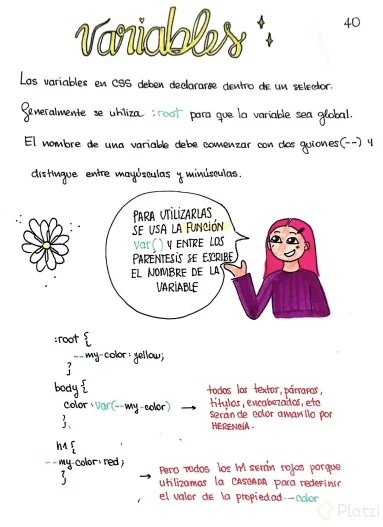 Variables
40
Las variables en CSS deben declararse dentro de un selector.
Generalmente se utiliza :root para que la variable sea global.
El nombre de una variable debe comenzar con dos guiones(--) y
distingue entre mayúsculas y minúsculas.
PARA UTILIZARLAS
SE USA LA FUNCIÓN
var( ) y ENTRE LOS
PARENTESIS SE ESCRIBE
EL NOMBRE DE LA
VARIABLE
:root {
--my-color: yellow;
}
body {
color: var(--my-color)
}
→ todos los textos, párrafos,
títulos, encabezados, etc
serán de color amarillo por
HERENCIA.
h1 {
--my-color: red;
}
→ Pero todos los h1 serán rojos porque
utilizamos la CASCADA para redefinir
el valor de la propiedad --color
Platzi